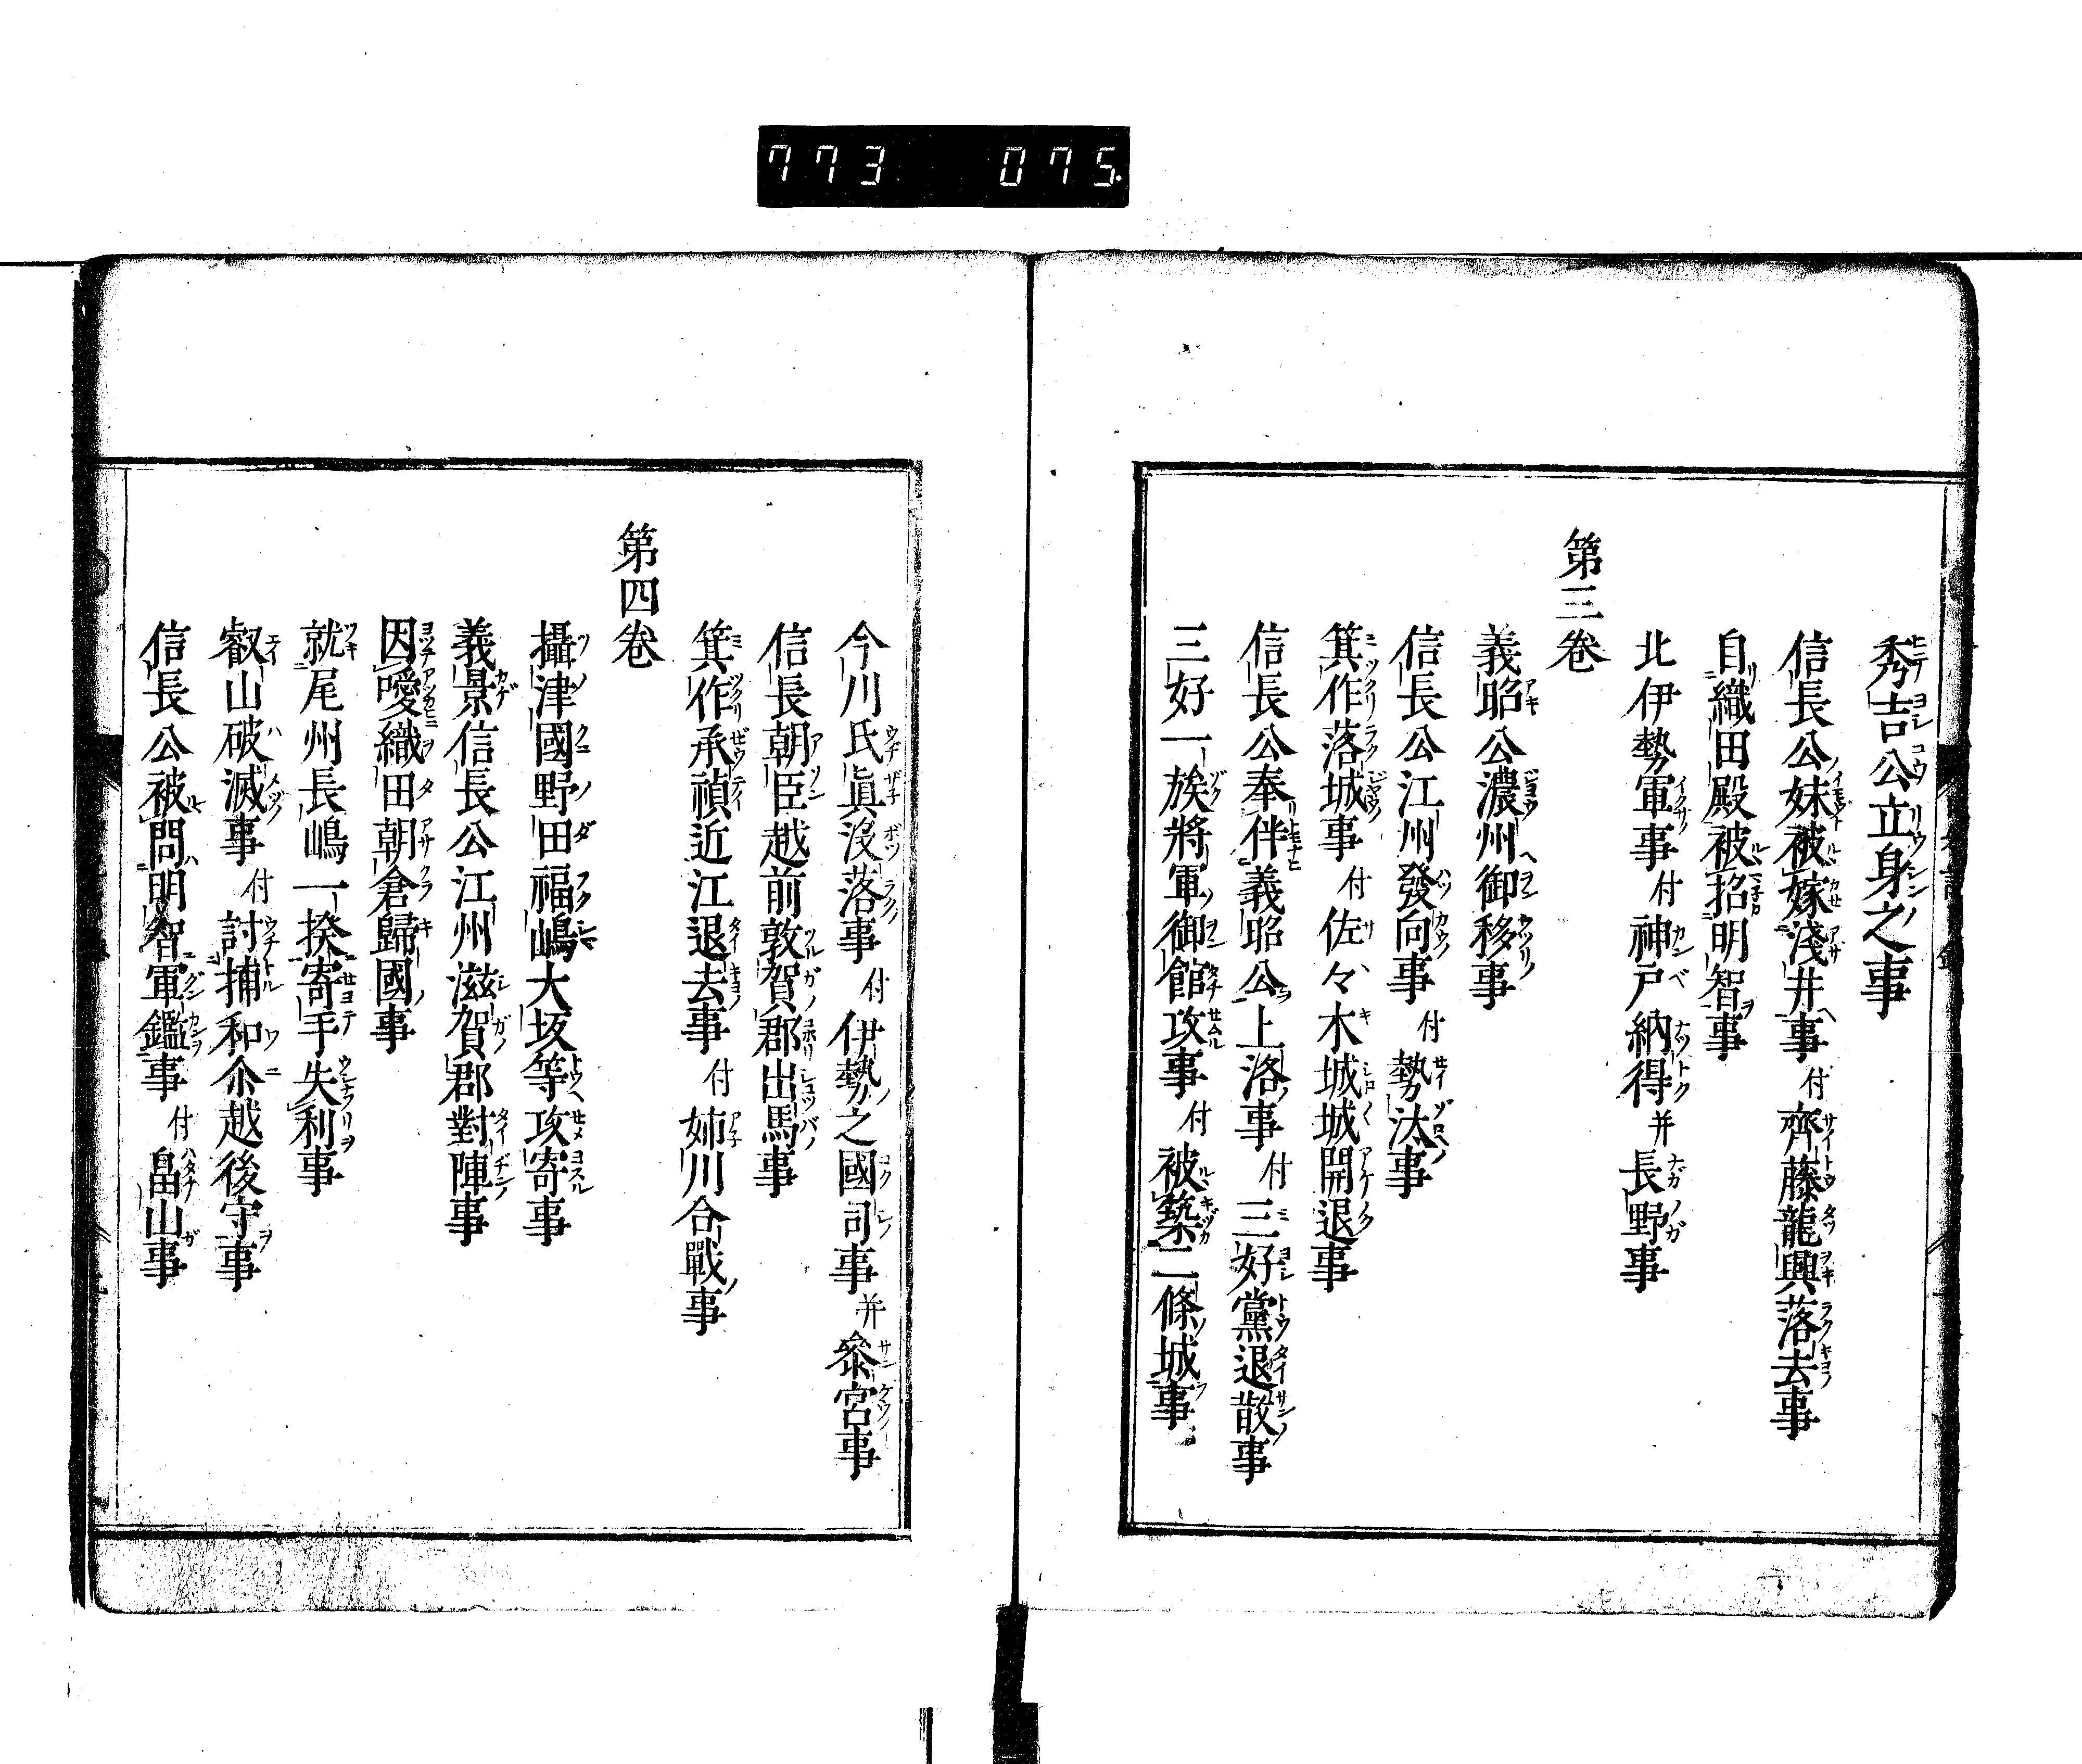 773 075
秀吉公立身之事
信長公妹被嫁淺井事 付 齊藤龍興落去事
自織田殿被招明智事
北伊勢軍事 付 神戸納得 并 長野事
第三卷
義昭公濃州御移事
信長公江州發向事 付 勢汰事
箕作落城事 付 佐々木城城開退事
信長公奉伴義昭公上洛事 付 三好黨退散事
三好一族將軍御館攻事 付 被築二條城事
今川氏眞沒落事 付 伊勢之國司事 并 參宮事
信長朝臣越前敦賀郡出馬事
箕作承禎近江退去事 付 姉川合戰事
第四卷
攝津國野田福嶋大坂等攻寄事
義景信長公江州滋賀郡對陣事
因噯織田朝倉歸國事
就尾州長嶋一揆寄手失利事
叡山破滅事 付 討捕和尒越後守事
信長公被問明智軍鑑事 付 畠山事